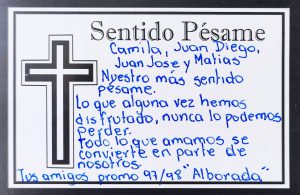 Sentido Pésame
Camila, Juan Diego,
Juan Jose y Matias
Nuestro más sentido
pésame.
Lo que alguna vez hemos
disfrutado, nunca lo podemos
perder.
todo lo que amamos se
convierte en parte de
nosotros.
Tus amigos promo 97/98 "Alborada"